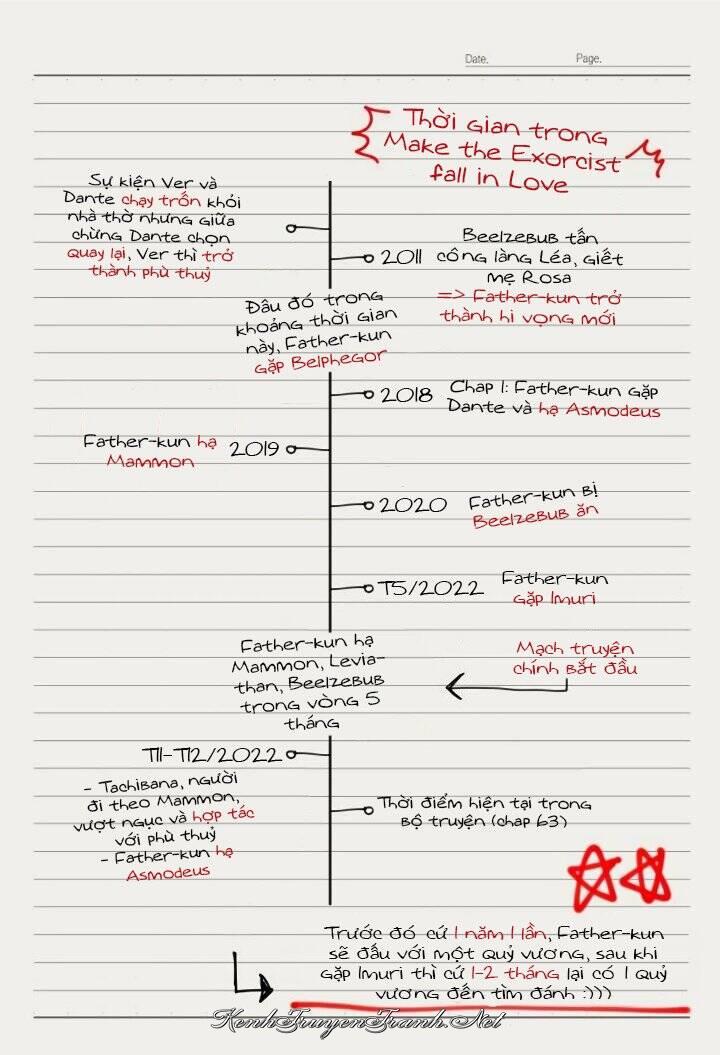 Date.
Page.
Thời gian trong
Make the Exorcist
fall in Love
Sự kiện Ver và
Dante chạy trốn khỏi
nhà thờ nhưng giữa
chừng Dante chọn
quay lại, Ver thì trở
thành phù thuỷ
2011
Beelzebub tấn
công làng Léa, giết
mẹ Rosa
=> Father-kun trở
thành hi vọng mới
Đâu đó trong
khoảng thời gian
này, Father-kun
gặp Belphegor
2018
Chap 1: Father-kun gặp
Dante và hạ Asmodeus
Father-kun hạ
Mammon
2019
2020
Father-kun bị
Beelzebub ăn
T5/2022
Father-kun
gặp Imuri
Father-kun hạ
Mammon, Levia-
than, Beelzebub
trong vòng 5
tháng
Mạch truyện
chính bắt đầu
T11-T12/2022
- Tachibana, người
đi theo Mammon,
vượt ngục và hợp tác
với phù thuỷ
- Father-kun hạ
Asmodeus
Thời điểm hiện tại trong
bộ truyện (chap 63)
Trước đó cứ 1 năm 1 lần, Father-kun
sẽ đấu với một quỷ vương, sau khi
gặp Imuri thì cứ 1-2 tháng lại có 1 quỷ
vương đến tìm đánh :)))
KenhTruyenTranh.Net